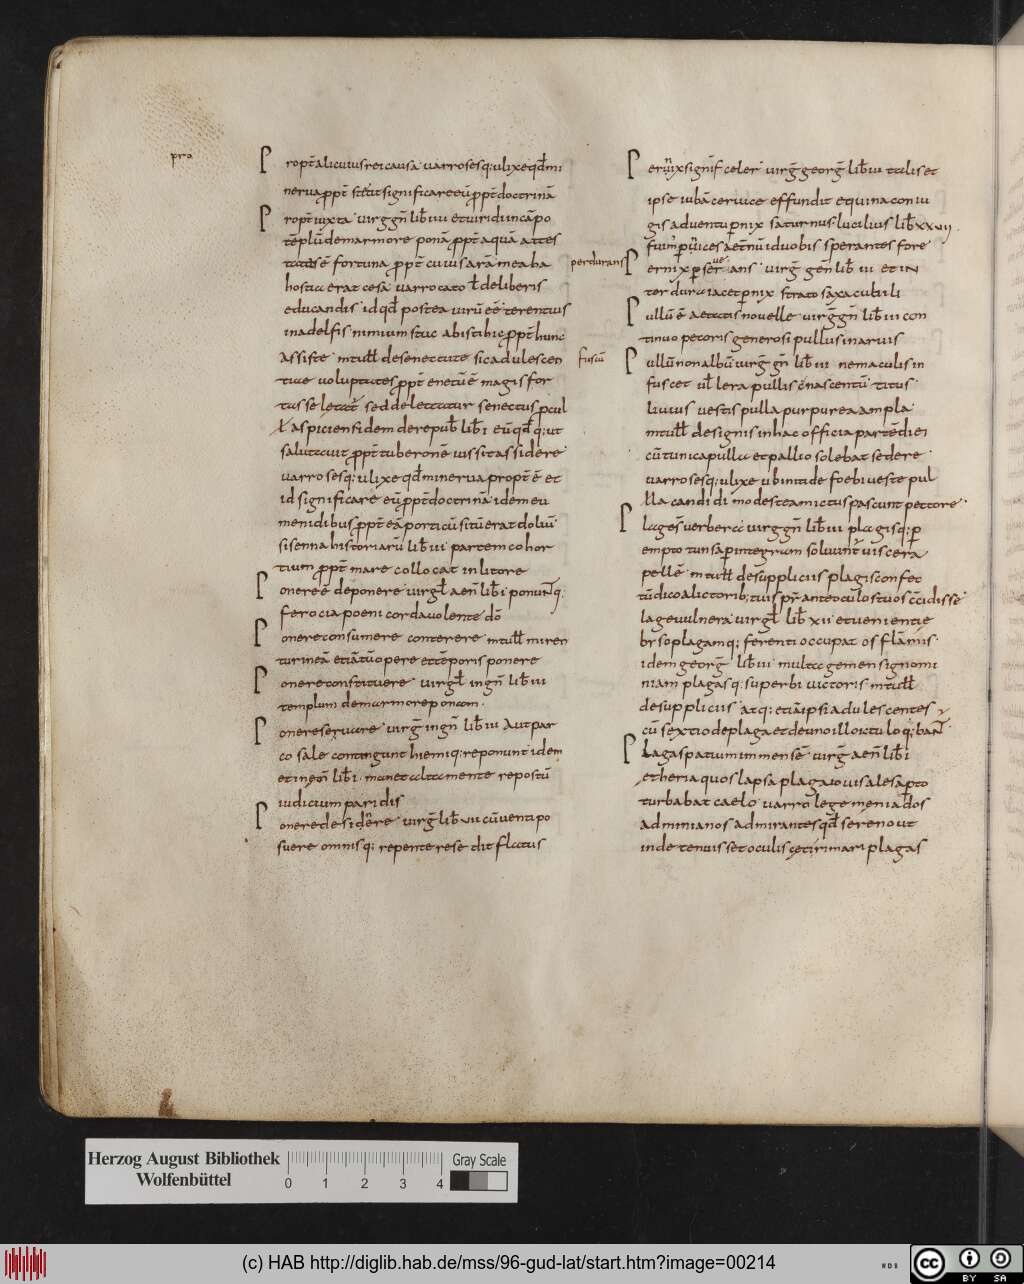 pro
Propt̄ alicuius rei causā varro sesq; ulixe qđ mi
nerva ꝓpt̄ significare eū ꝓpt̄ doctrinā
Propt̄ iuxta virg gn̄ lib̄ iii et viridi in cāpo
tēplū de marmore ponā ꝓpt̄ aquā at tes
fortuna ꝓpt̄ cuius arā mea ba
hostia erat cesa varro cato ł de liberis
educandis id qđ postea virū eē terentius
in adelfis nimium ꝓpt̄ hunc
assiste mtułł de senectute sic adulescen
tiae voluptates ꝓpt̄ magis for
tasse sed delectatur senectus ꝓcul
aspiciens idem de repub̄ lib̄ i eū qđ q; ut
salutavit ꝓpt̄ tuberonē iussit assidere
varro sesq; ulixe qđ minerva propt̄ ē et
id significare eū ꝓpt̄ doctrinā idem eu
menidibus ꝓpt̄ eā porticū sitū erat doliū
sisenna historiarū lib̄ iii partem cohor
tium ꝓpt̄ mare collocat in litore
Ponere ē deponere virgł aen̄ lib̄ i ponunt̄q;
ferocia poeni corda volente dō
Ponere consumere conterere mtułł muren
tur in eā etiā tū opere et tēporis ponere
Ponere constituere virgł in gn̄ lib̄ iii
templum de marmore ponam.
Ponere servare virḡ in gn̄ lib̄ iii aut par
co sale contingunt hiemiq; reponunt idem
et in eōn lib̄ i manet alta mente repostū
iudicium paridis
Ponere desidere virḡ lib̄ vii cū venti po
suere omnisq; repente resedit flatus
Pernix signif̄ celer virḡ georḡ lib̄ iii talis et
ipse iubā cervice effundit equina coniu
gis adventu ꝑnix saturnus lucilius lib̄ xxvii
duobis sperantes fore
perdurans Pernix ꝑseverans virḡ gen̄ lib̄ iii et in
ter dura iacet ꝑnix strato saxa cubili
Pullū ē aetatis novelle virḡ gn̄ lib̄ iii con
tinuo pecoris generosi pullus in arvis
fuscū Pullū non albū virḡ gn̄ lib̄ iii ne maculis in
fuscet vłlera pullis nascentū titus
livius vestis pulla purpurea ampla
mtułł de signis in hac officia partē diei
cū tunica pulla et pallio solebat sedere
varro sesq; ulixe ubi nitide foebi veste pul
lla candidi modeste amictus pascunt pectore
Plages verbera virg gn̄ lib̄ iii plagisq; ꝑ
empto tunsa ꝑ integram solvunt̄ viscera
pellē mtułł de suppliciis plagis confec
tū dico a lictorib; tuis
lage vulnera virgł lib̄ xii et venientie
br so plagamq; ferenti occupat os flāmis
idem georḡ lib̄ iii multa gemens ignomi
niam plagasq; superbi victoris mtułł
de suppliciis atq; etiā ipsi adulescentes
cū sextio de plaga et de vno illo
Plaga spatium immensē virḡ aen̄ lib̄ i
etheria quos lapsa plaga iovis ales apto
turbabat caelo varro lege meniados
ad minianos admirantes qđ sereno ut
inde tenuis set oculis plagas
Herzog August Bibliothek
Wolfenbüttel
0 1 2 3 4
Gray Scale
(c) HAB http://diglib.hab.de/mss/96-gud-lat/start.htm?image=00214
WDB
cc BY SA